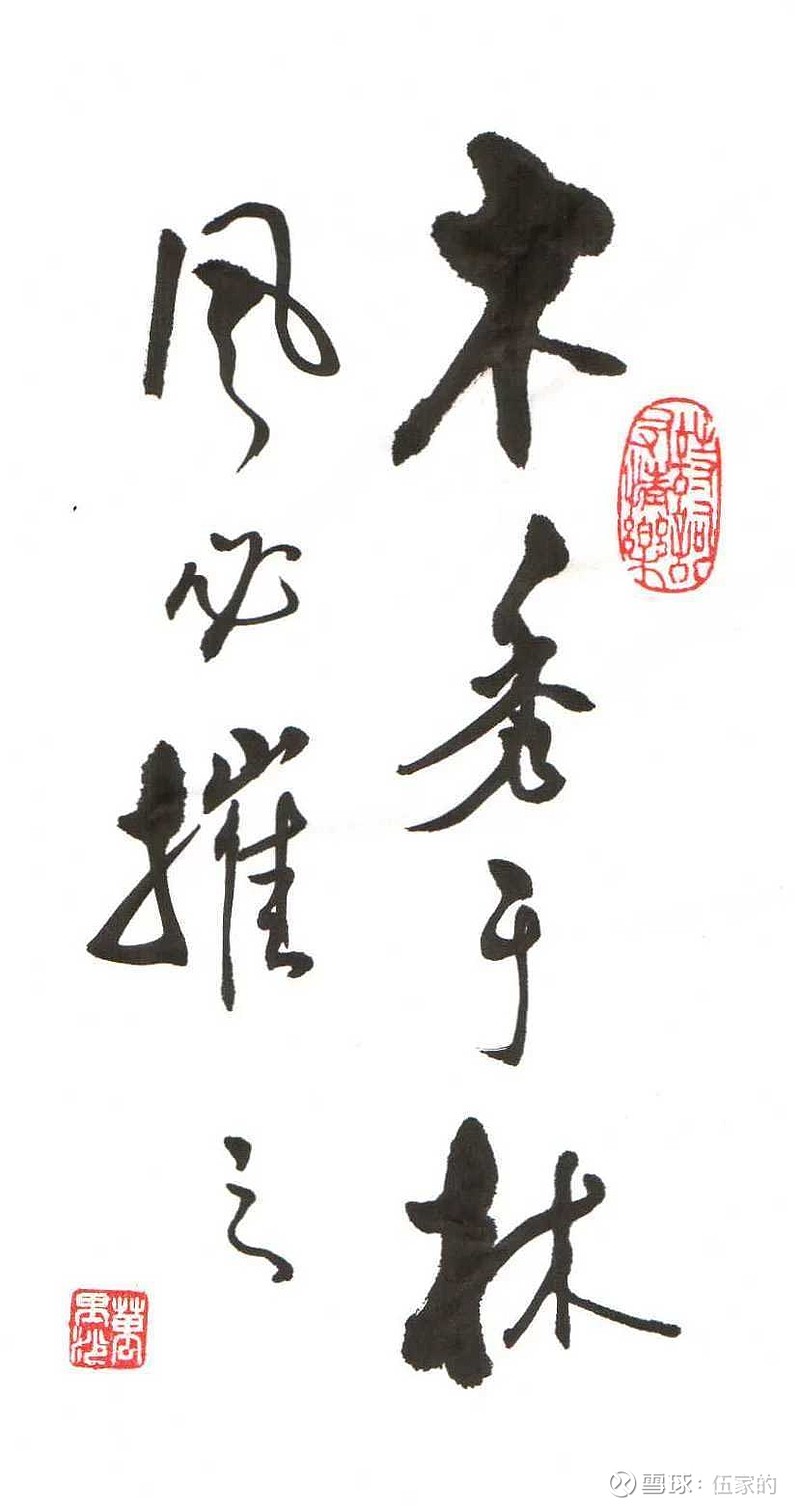 木秀于林
风必摧之
雪球：伍家的